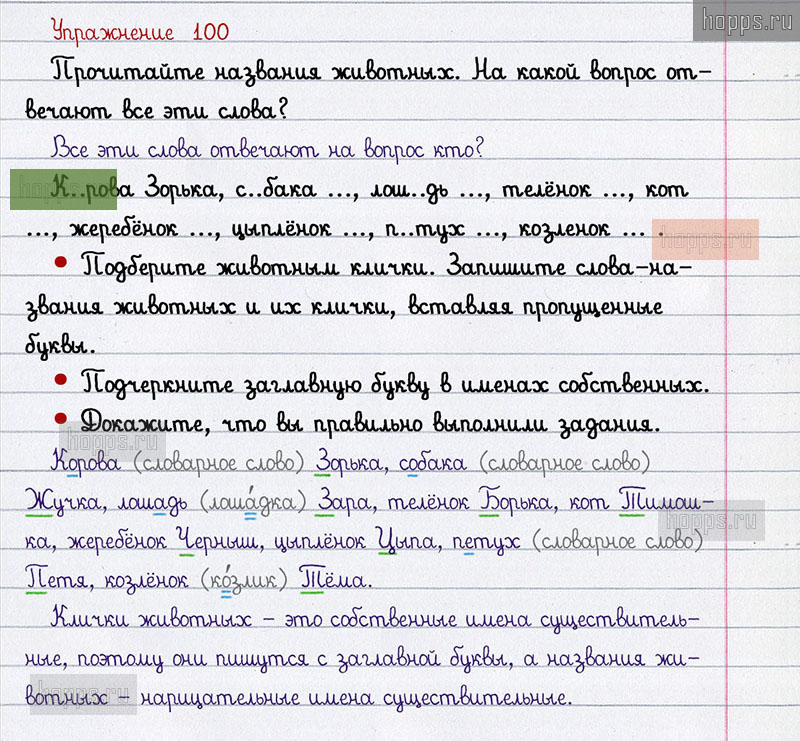 hopps.ru
Упражнение 100
Прочитайте названия животных. На какой вопрос от-
вечают все эти слова?
Все эти слова отвечают на вопрос кто?
К..рова Зорька, с..бака ..., лош..дь ..., телёнок ..., кот
..., жеребёнок ..., цыплёнок ..., п..тух ..., козленок ... .
hopps.ru
hopps.ru
• Подберите животным клички. Запишите слова-на-
звания животных и их клички, вставляя пропущенные
буквы.
• Подчеркните заглавную букву в именах собственных.
• Докажите, что вы правильно выполнили задания.
hopps.ru
Корова (словарное слово) Зорька, собака (словарное слово)
Жучка, лошадь (лоша́дка) Зара, телёнок Борька, кот Тимош-
hopps.ru
ка, жеребёнок Черныш, цыплёнок Цыпа, петух (словарное слово)
Петя, козлёнок (ко́злик) Тёма.
Клички животных – это собственные имена существитель-
ные, поэтому они пишутся с заглавной буквы, а названия жи-
вотных – нарицательные имена существительные.
hopps.ru